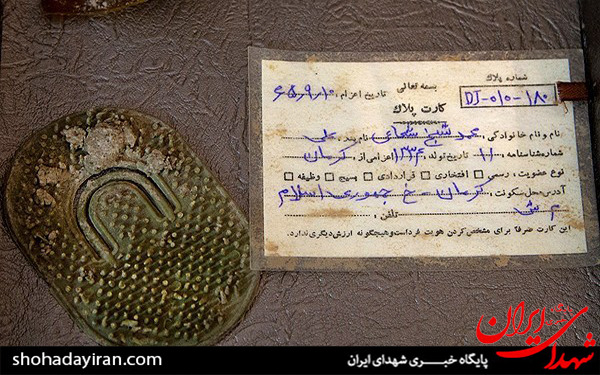 شماره پلاك
بسمه تعالی
DJ-010-180
تاریخ اعزام: ۶۵،۹،۱۰
كارت پلاك
نام و نام خانوادگی: محمد شیخ شعاعی نام پدر: علی
شماره شناسنامه: ۱۱ تاریخ تولد: ۱۳۴۶ اعزامی از: کرمان
نوع عضویت: رسمی □ افتخاری □ قراردادی □ بسیج □ وظیفه □
آدرس محل سکونت: کرمان - خ جمهوری اسلامی
تلفن:
این کارت صرفا برای مشخص کردن هویت فرد است و هیچگونه ارزش دیگری ندارد.
شهدای ایران
shohadayiran.com
پایگاه خبـری شهدای ایران